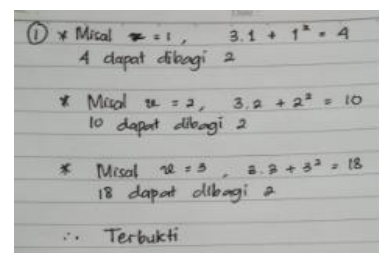 ① * Misal n = 1, 3.1 + 1² = 4
4 dapat dibagi 2
* Misal n = 2, 3.2 + 2² = 10
10 dapat dibagi 2
* Misal n = 3, 3.3 + 3² = 18
18 dapat dibagi 2
∴ Terbukti